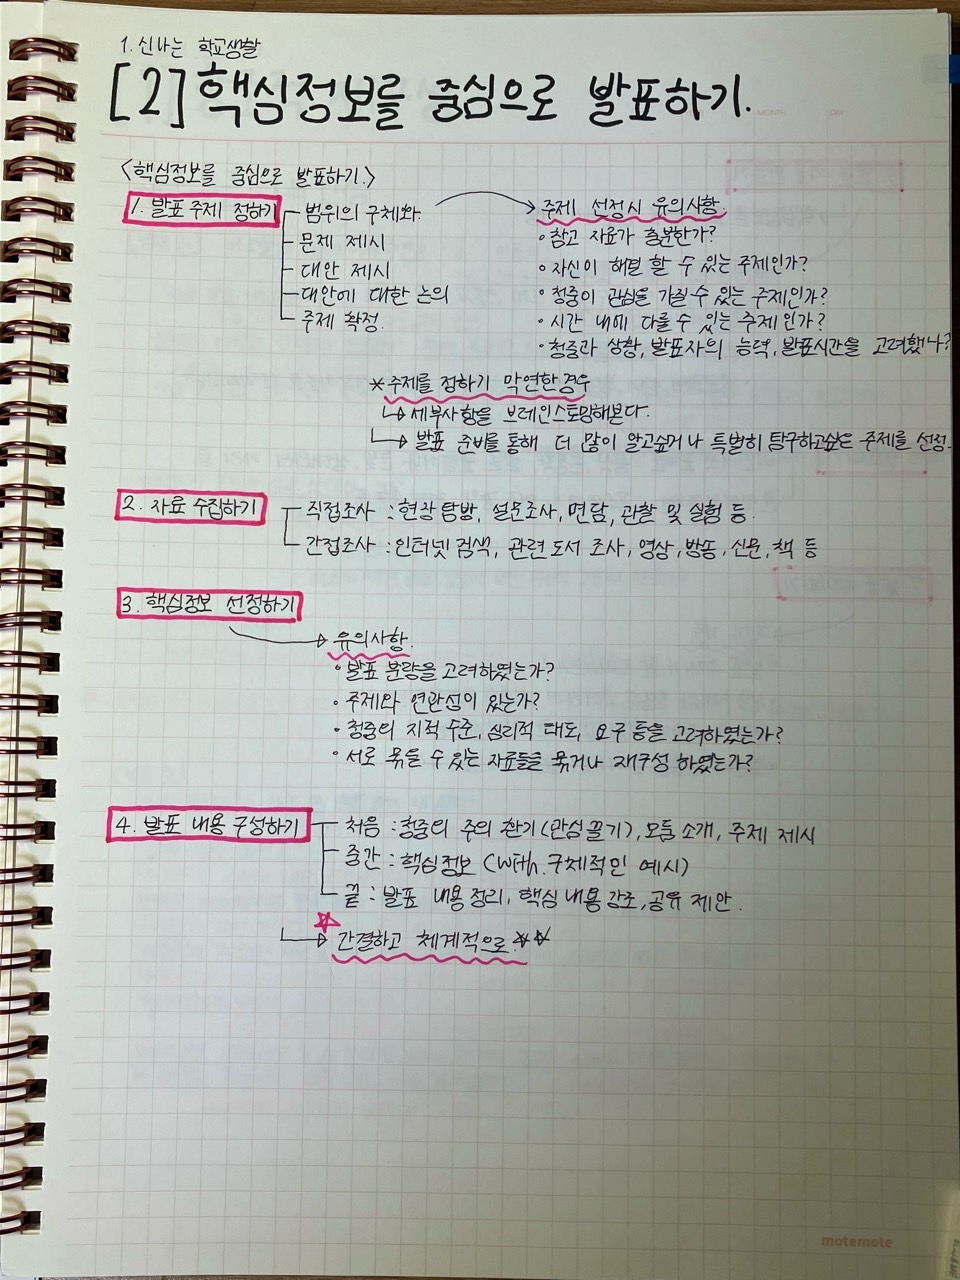 1. 신나는 학교생활
[2] 핵심정보를 중심으로 발표하기.
<핵심정보를 중심으로 발표하기.>
1. 발표 주제 정하기
범위의 구체화
문제 제시
대안 제시
대안에 대한 논의
주제 확정.
주제 선정시 유의사항.
• 참고 자료가 충분한가?
• 자신이 해결 할 수 있는 주제인가?
• 청중이 관심을 가질 수 있는 주제인가?
• 시간 내에 다룰 수 있는 주제인가?
• 청중과 상황, 발표자의 능력, 발표시간을 고려했나?
* 주제를 정하기 막연한 경우
↳ 세부사항을 브레인스토밍해본다.
↳ 발표 준비를 통해 더 많이 알고싶거나 특별히 탐구하고싶은 주제를 선정.
2. 자료 수집하기
직접조사 : 현장 탐방, 설문조사, 면담, 관찰 및 실험 등.
간접조사 : 인터넷 검색, 관련 도서 조사, 영상, 방송, 신문, 책 등
3. 핵심정보 선정하기
→ 유의사항.
• 발표 분량을 고려하였는가?
• 주제와 연관성이 있는가?
• 청중의 지적 수준, 심리적 태도, 요구 등을 고려하였는가?
• 서로 묶을 수 있는 자료들을 묶거나 재구성 하였는가?
4. 발표 내용 구성하기
처음 : 청중의 주의 환기(관심 끌기), 모둠 소개, 주제 제시
중간 : 핵심정보 (with. 구체적인 예시)
끝 : 발표 내용 정리, 핵심 내용 강조, 공유 제안.
☆
↳ 간결하고 체계적으로 ☆☆
motemote